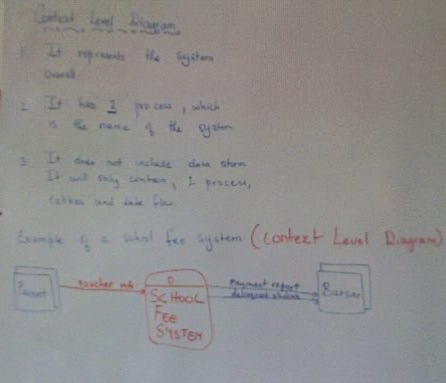 Context Level Diagram
1. It represents the system
overall
2. It has 1 process, which
is the name of the system
3. It does not include data store
It will only contain, 1 process,
entities and data flow
Example of a school fee system (Context Level Diagram)
Parent
voucher info
0
SCHOOL
FEE
SYSTEM
Payment report
delinquent students
Bursar